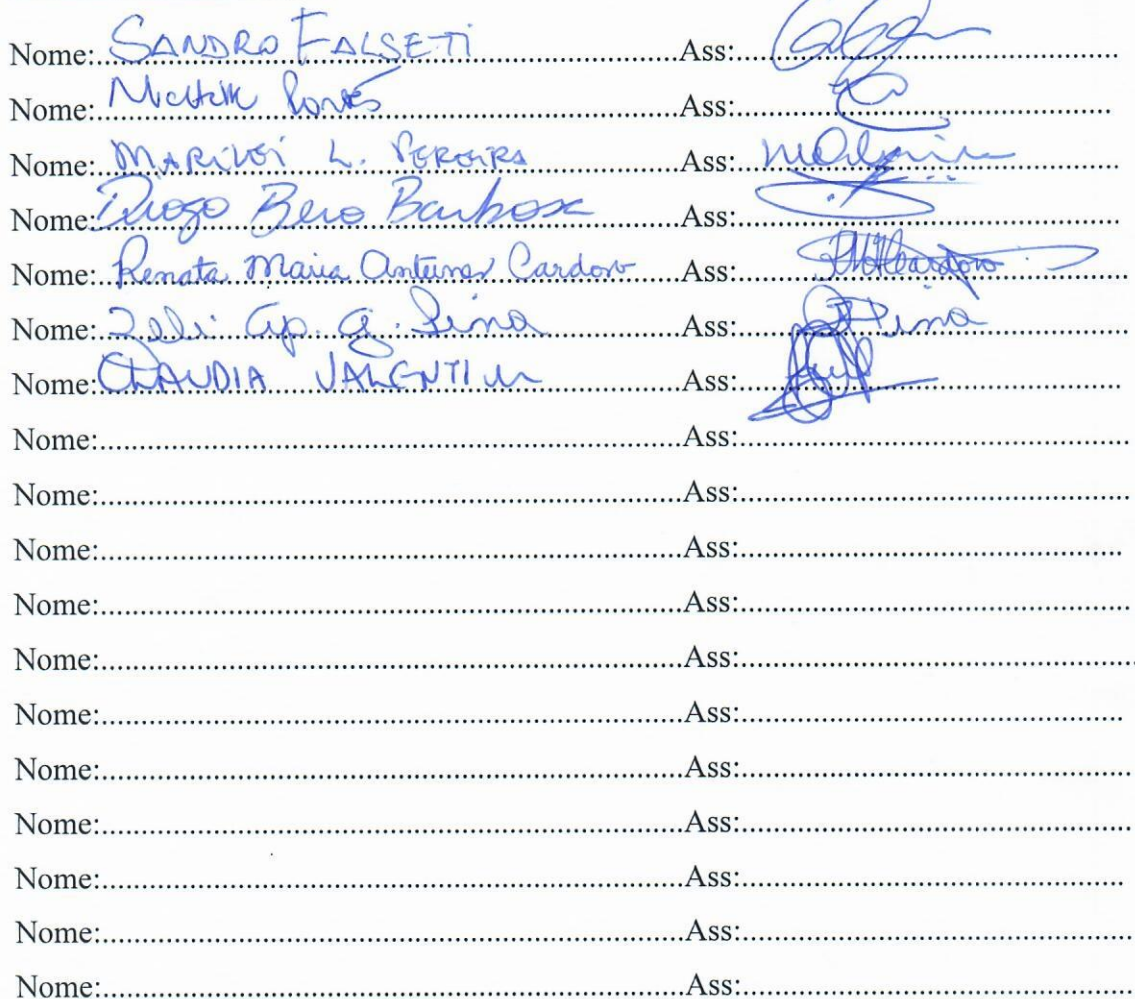 Nome: SANDRO FALSETI Ass:
Nome: Michele Pontes Ass:
Nome: MARiLEi L. PEREiRA Ass:
Nome: Diogo Bero Barbosa Ass:
Nome: Renata Maria Antunes Cardoso Ass: Cardoso
Nome: Zeli Ap. G. Lima Ass: Lima
Nome: CLAUDIA VALENTIM Ass:
Nome: Ass:
Nome: Ass:
Nome: Ass:
Nome: Ass:
Nome: Ass:
Nome: Ass:
Nome: Ass:
Nome: Ass:
Nome: Ass:
Nome: Ass:
Nome: Ass: